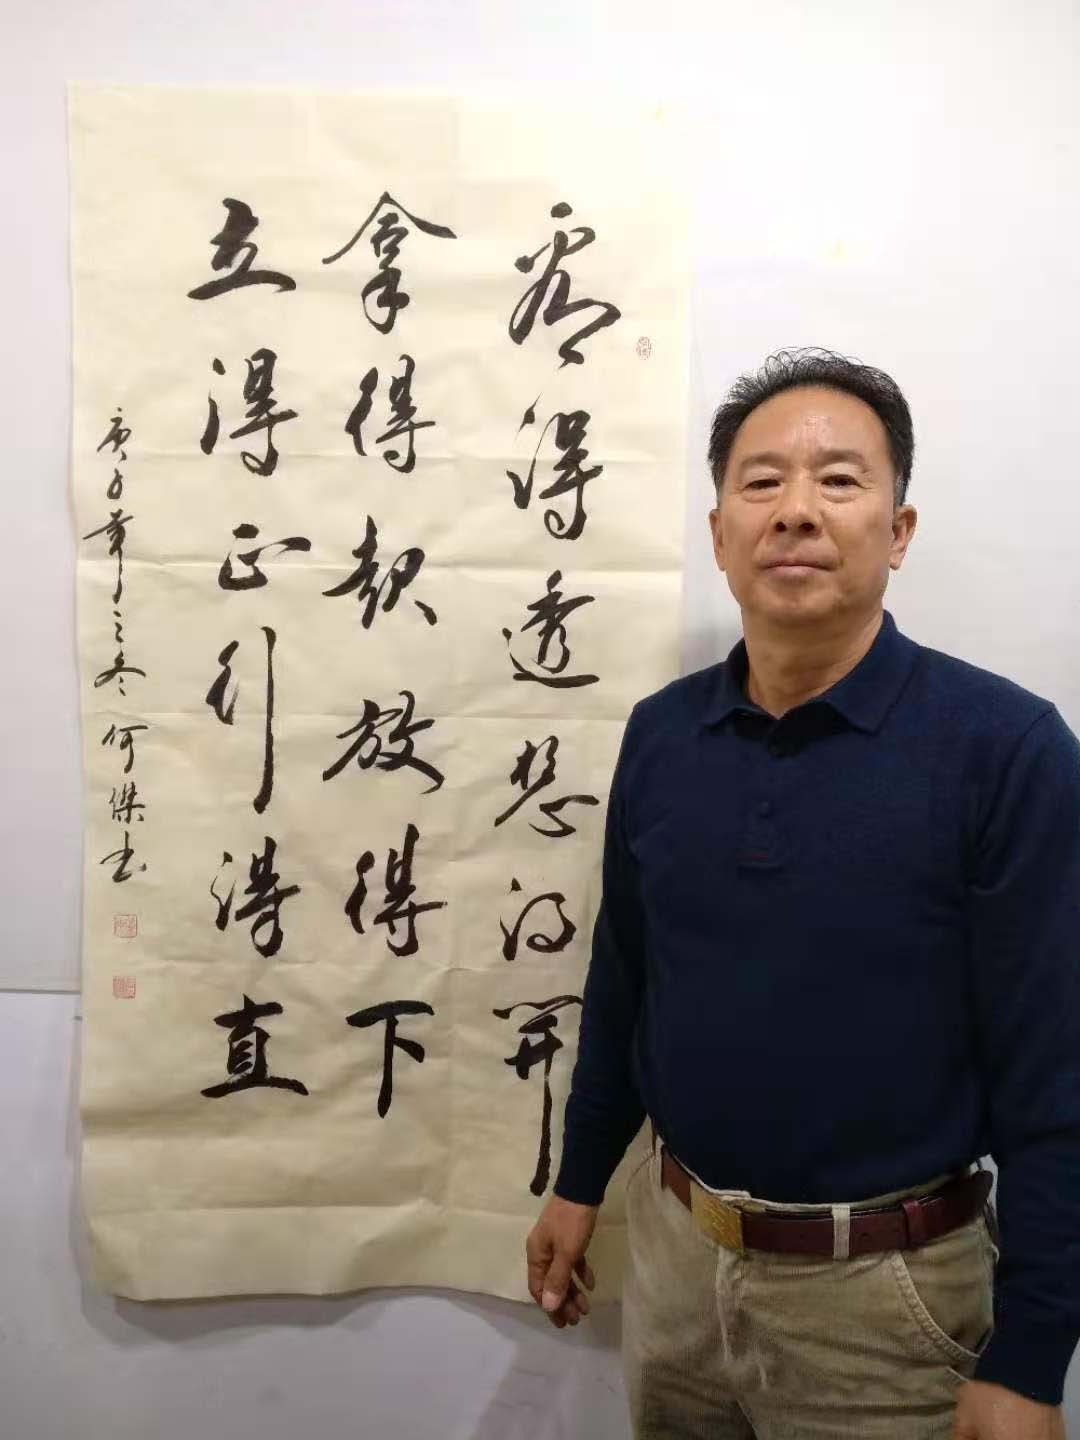 看得透想得開
拿得起放得下
立得正行得直
庚子年之冬何傑书